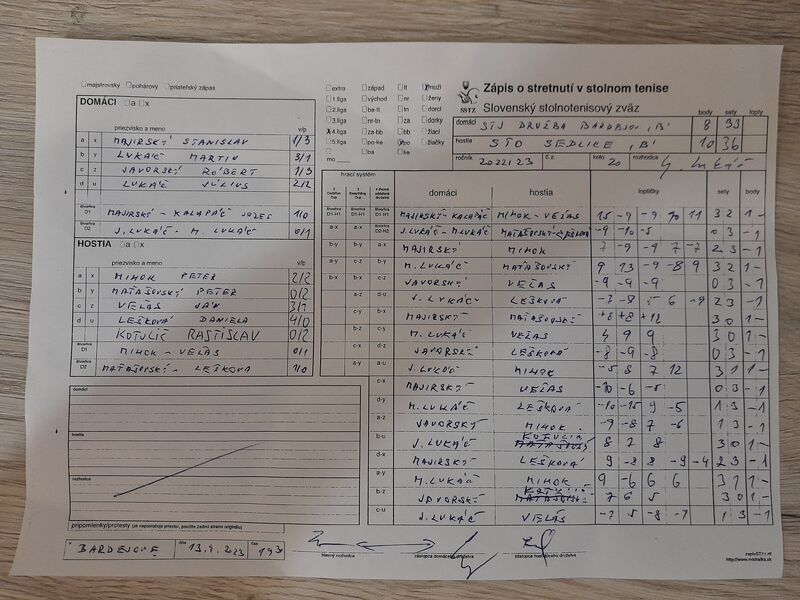 majstrovský pohárový priateľský zápas
DOMÁCI a x
priezvisko a meno v/p
a x MAJIRSKÝ STANISLAV 1/3
b y LUKÁČ MARTIN 3/1
c z JAVORSKÝ RÓBERT 1/3
d u LUKÁČ JÚLIUS 2/2
štvorhra D1 MAJIRSKÝ - KALAPÁČ JOZEF 1/0
štvorhra D2 J. LUKÁČ - M. LUKÁČ 0/1
HOSTIA a x
priezvisko a meno v/p
a x MIHOK PETER 2/2
b y MAŤAŠOVSKÝ PETER 0/2
c z VEĽAS JÁN 3/1
d u LEŠKOVÁ DANIELA 4/0
KOTULIČ RASTISLAV 0/2
štvorhra D1 MIHOK - VEĽAS 0/1
štvorhra D2 MAŤAŠOVSKÝ - LEŠKOVÁ 1/0
domáci
hostia
rozhodca
pripomienky/protesty (ak nepostačuje priestor, použite zadnú stranu originálu)
v BARDEJOVE dňa 13.4.2023 čas
hlavný rozhodca zástupca domáceho družstva zástupca hosťujúceho družstva
extra západ tt muži
1.liga východ nr ženy
2.liga ba-tt tn dorci
3.liga nr-tn za dorky
4.liga za-bb bb žiaci
5.liga po-ke po žiačky
ba ke
mo
Zápis o stretnutí v stolnom tenise
SSTZ Slovenský stolnotenisový zväz
body sety lopty
domáci STJ DRUŽBA BARDEJOV "B" 8 33
hostia STO SEDLICE "B" 10 36
ročník 2022/23 č.z. kolo 20 rozhodca
hrací systém
domáci hostia loptičky sety body
MAJIRSKÝ-KALAPÁČ MIHOK-VEĽAS 15 -9 -9 10 11 3 2 1 -
J.LUKÁČ-M.LUKÁČ MAŤAŠOVSKÝ-LEŠKOVÁ -9 -10 -5 0 3 -1
b-y MAJIRSKÝ MIHOK 7 -9 -9 7 -7 2 3 -1
M. LUKÁČ MAŤAŠOVSKÝ 9 13 -9 -8 9 3 2 1 -
JAVORSKÝ VEĽAS -9 -9 -9 0 3 -1
J. LUKÁČ LEŠKOVÁ -3 -8 6 -9 2 3 -1
MAJIRSKÝ MAŤAŠOVSKÝ +8 +8 +12 3 0 1 -
M. LUKÁČ VEĽAS 4 9 9 3 0 1 -
JAVORSKÝ LEŠKOVÁ -8 -9 -8 0 3 -1
J. LUKÁČ MIHOK -5 8 7 12 3 1 1 -
c-x MAJIRSKÝ VEĽAS -10 -6 -5 0 3 -1
d-y M. LUKÁČ LEŠKOVÁ -10 -15 9 -5 1 3 -1
a-z JAVORSKÝ MIHOK -9 -8 7 -6 1 3 -1
b-u J. LUKÁČ KOTULIČ 8 7 8 3 0 1 -
d-x MAJIRSKÝ LEŠKOVÁ 9 -8 8 -9 -4 2 3 -1
a-y M. LUKÁČ MIHOK 9 -6 6 6 3 1 1 -
b-z JAVORSKÝ KOTULIČ 7 6 5 3 0 1 -
c-u J. LUKÁČ VEĽAS -7 5 -8 -7 1 3 -1
zapisST11.rtf
http://www.michalka.sk